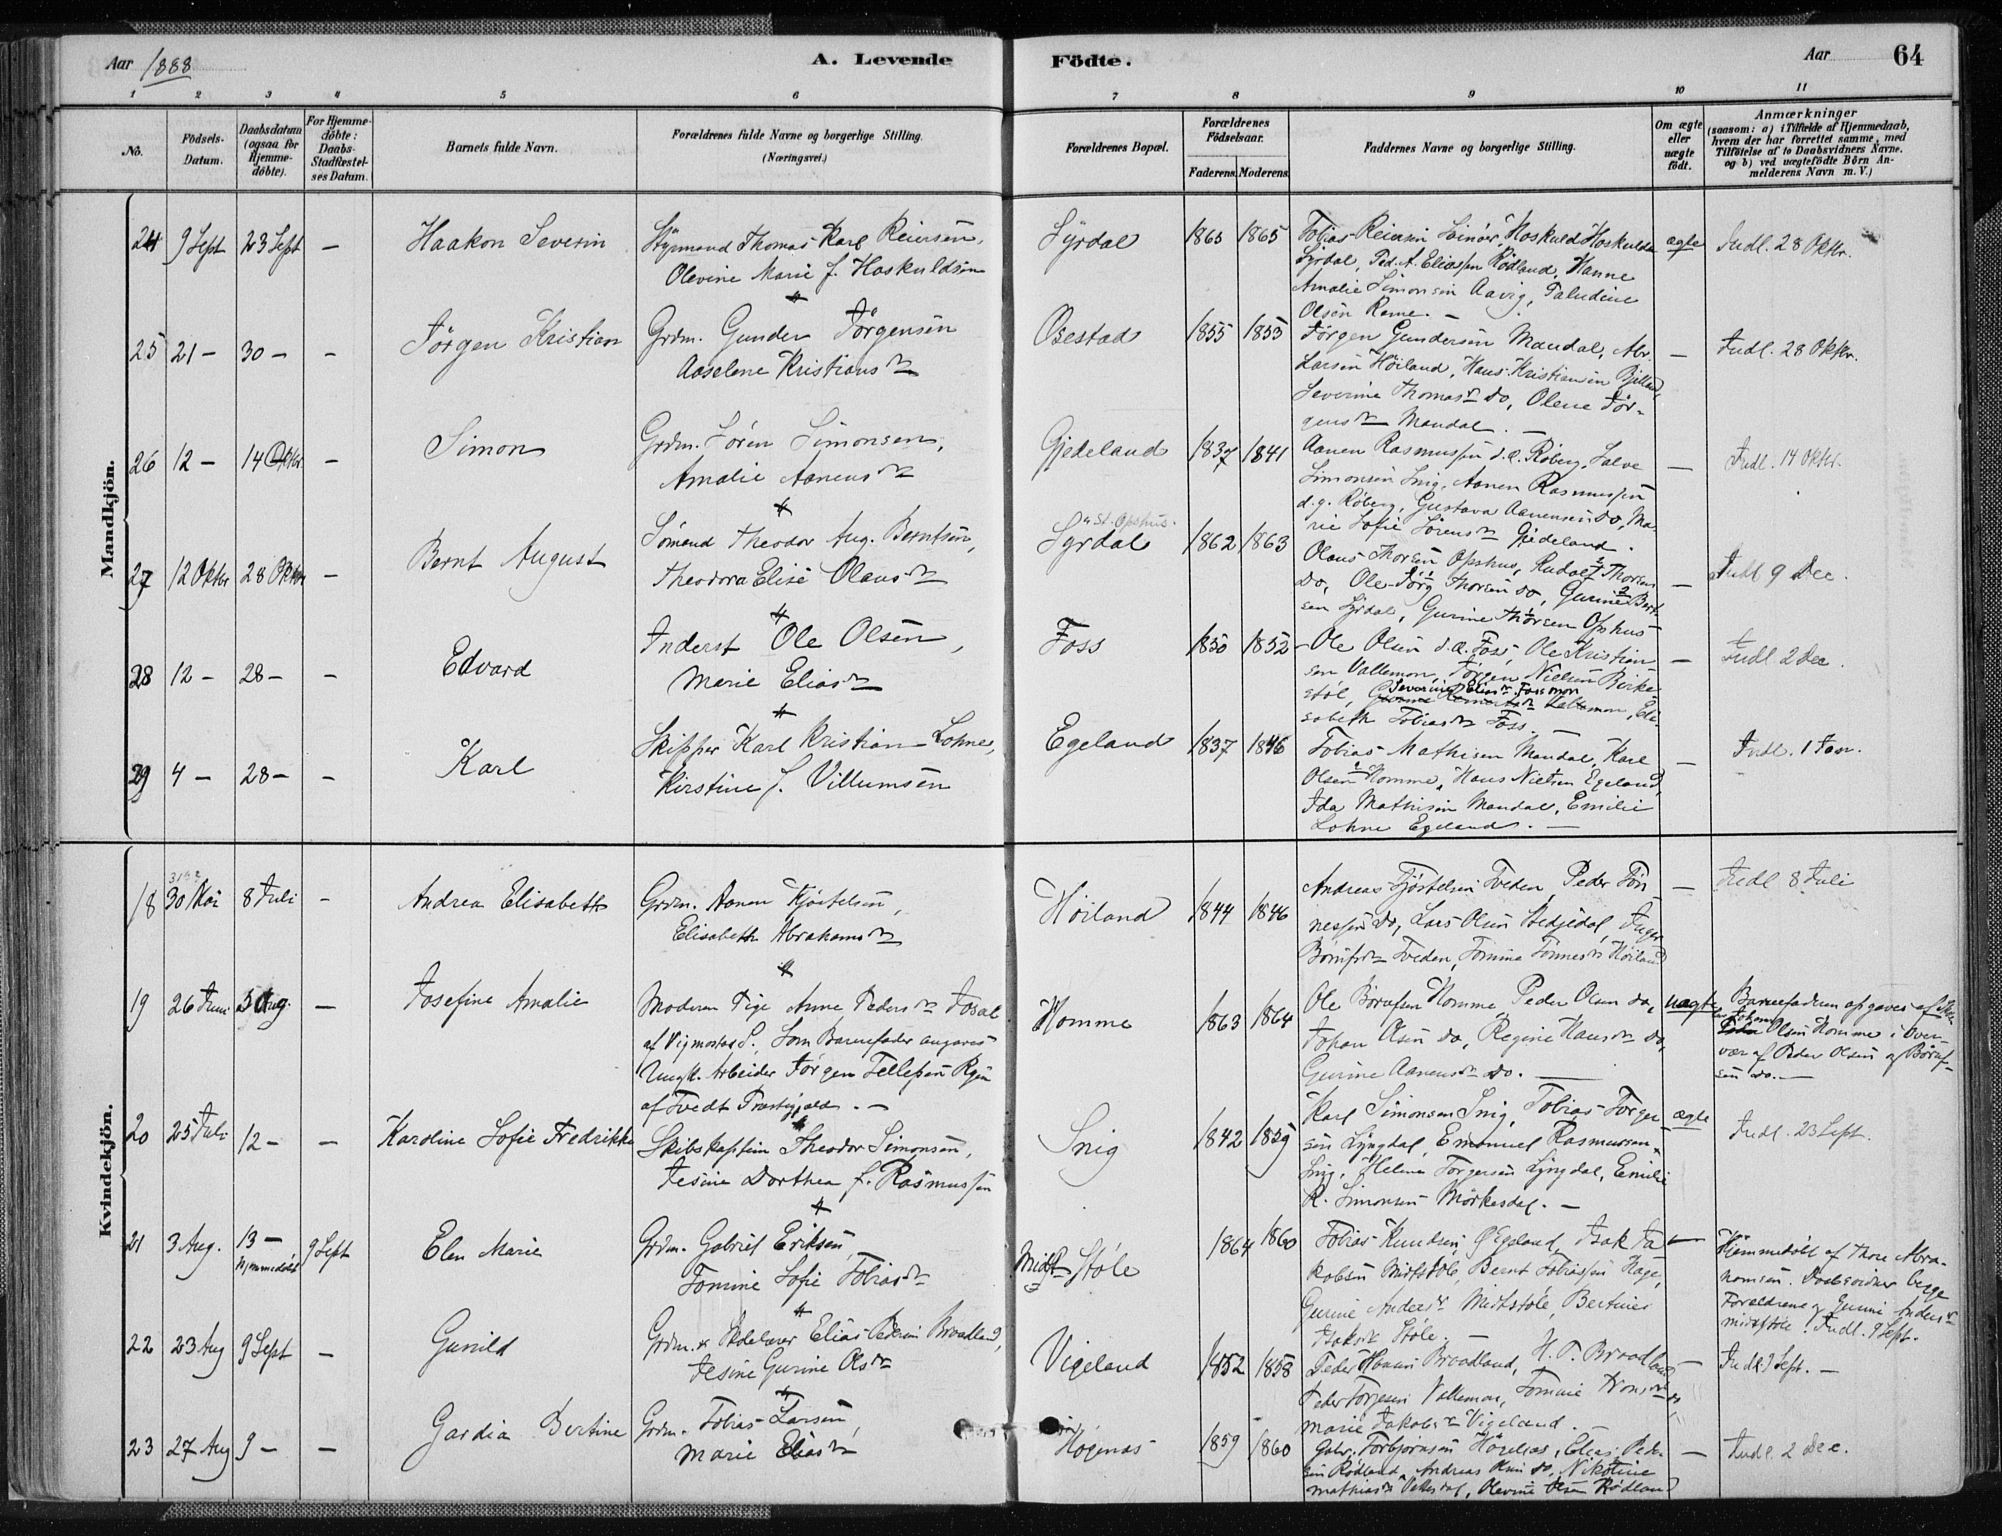 Aar 1888
A. Levende
Födte.
Aar
64
1 2 3 4 5 6 7 8 9 10 11
No.
Födsels-Datum.
Daabsdatum (ogsaa for Hjemme-döbte).
For Hjemme-döbte: Daabs-Stadfæstel-ses Datum.
Barnets fulde Navn.
Forældrenes fulde Navne og borgerlige Stilling.
(Næringsvei.)
Forældrenes Bopæl.
Forældrenes Födselsaar.
Faderens. Moderens.
Faddernes Navne og borgerlige Stilling.
Om ægte eller uægte födt.
Anmærkninger
(saasom: a) i Tilfælde af Hjemmedaab,
hvem der har forrettet samme, med
Tilföielse af to Daabsvidners Navne.
og b) ved uægtefödte Börn An-
melderens Navn m. V.)
Mandkjön.
24 9 Sept 23 Sept - Haakon Severin
Styrmand Thomas Karl Reiersen,
Olevine Marie f. Hoskuldsen
Syrdal 1865 1865
Tobias Reiersen Hoskuld Hoskulds
Syrdal, Ped. A. Eliassen Rödland, Hanne
Amalie Simonsen Aavig, Paludine
Olsen Rome. -
ægte Indl. 28 Oktbr.
25 21 - 30 - - Jörgen Kristian
Grdm. Gunder Jörgensen
Aaselene Kristians dr
Osestad 1855 1853
Jörgen Gundersen Mandal, Abr.
Larsen Höiland, Hans Kristiansen Bjelland,
Severine Thomas dr do, Olene Jör-
gens dr Mandal. -
- Indl. 28 Oktbr.
26 12 - 14 Oktbr - Simon
Grdm. Sören Simonsen,
Amalie Aanens dr
Gjedeland 1837 1841
Aanen Rasmussen d.e. Röberg, Salve
Simonsen Snig, Aanen Rasmussen
d.y. Röberg, Gustava Aanensen do, Ma-
rie Sofie Sörens dr Gjedeland.
- Indl. 14 Oktbr.
27 12 Oktbr 28 Oktbr - Bernt August
Sömand Theodor Aug. Berntsen,
Theodora Elise Olaus dr
St. Opshus.
Syrdal 1862 1863
Olaus Thorsen Opshus, Rudolf Thorsen
do, Ole Jörg. Thorsen do, Gurine Bernt-
sen Syrdal, Gurine Thorsen Opshus
- Indl 9 Dec.
28 12 - 28 - - Edvard
Inderst Ole Olsen,
Marie Elias dr
Foss 1850 1852
Ole Olsen d.e. Foss, Ole Kristian-
sen Vallemon, Jörgen Nielsen Birke-
Severine Elias dr Fossmon
stöl, Eli-
sabeth Tobias dr Foss
- Indl 2 Dec.
29 4 - 28 - - Karl
Skipper Karl Kristian Lohne,
Kirstine f. Villumsen
Egeland 1837 1846
Tobias Mathisen Mandal, Karl
Olsen Homme, Hans Nielsen Egeland,
Ida Mathisen Mandal, Emilie
Lohne Egeland. -
- Indl. 1 Jan.
Kvindekjön.
18 30 Mai 8 Juli - Andrea Elisabeth
Grdm. Aanen Kjöstelsen,
Elisabeth Abrahams dr
Höiland 1844 1846
Andreas Kjöstelsen Tveden, Peder Tön-
nessen do, Lars Olsen Stedjedal, Inger
Tveden, Tomine Tönnes dr Höiland
- Indl 8 Juli
19 26 Juni 5 Aug. - Josefine Amalie
Moderen Pige Anne Peders dr Fosal
af Vigmostad S. Som Barnefader angaves
Ungk. Arbeider Jörgen Tellefsen
af Tvedt Præstegjæld. -
Homme 1863 1864
Ole Börufsen Homme, Peder Olsen do,
Johan Olsen do, Regine Hans dr do,
Gurine Aanens dr do. -
uægte
Barnefaderen opgaves af
Johan Olsen Homme i Over-
vær af Peder Olsen og Böruf-
sen do. -
20 25 Juli 12 - - Karoline Sofie Fredrikke
Skibskaptein Theodor Simonsen,
Jesine Dorthea f. Rasmussen
Snig 1842 1859
Karl Simonsen Snig, Tobias Torger-
sen Lyngdal, Emanuel Rasmussen
Snig, Helene Torgersen Lyngdal, Emilie
R. Simonsen Mörkesdal. -
ægte Indl. 23 Sept.
21 3 Aug. 13 - Hjemmedöbt 9 Sept Elen Marie
Grdm. Gabriel Eriksen,
Tomine Sofie Tobias dr
Midt-Stöle 1864 1860
Tobias Knudsen Ö Egeland, Isak Ja-
kobsen Midtstöle, Bernt Tobiassen Hage,
Gurine Anders dr Midtstöle, Bertine
Isaks dr Stöle. -
-
Hjemmedöbt af Thore Abra-
hamsen. Daabsvidner begge
Forældrene og Gurine Anders dr
Midtstöle. Indl. 9 Sept.
22 23 Aug 9 Sept - Gunild
Grdm. & Skolelærer Elias Pedersen Broadland,
Jesine Gurine Ols dr
Vigeland 1852 1858
Peder Hansen Broadland, H. P. Broadland
Peder Torjesen Vallemon, Tomine
Marie Jakobs dr Vigeland. -
- Indl 9 Sept. -
23 27 Aug 9 - - Gardia Bertine
Grdm. Tobias Larsen,
Marie Elias dr
Högenas 1859 1860
Gabr. Torbjörnsen Högenas, Elias Peder-
sen Rödland, Andreas Olsen do, Nikoline
Mathias dr, Olevine Olsen Rödland
- Indl. 2 Dec.